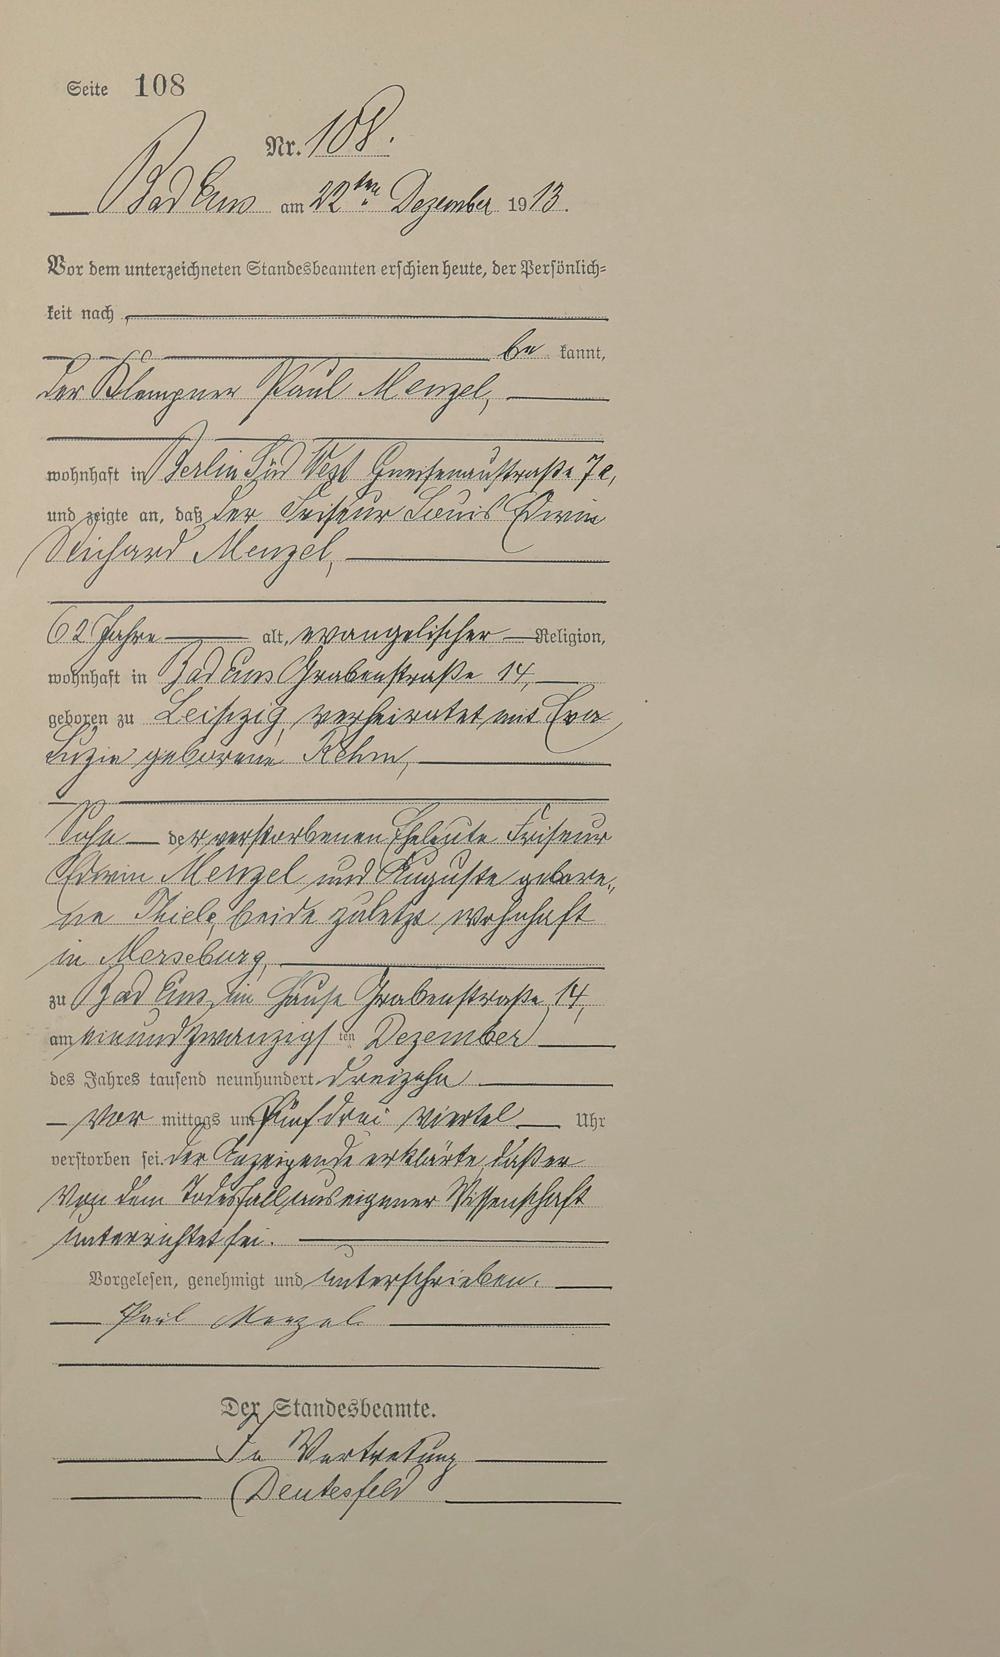 Seite 108
Nr. 108.
Bad Ems am 22ten Dezember 1913.
Vor dem unterzeichneten Standesbeamten erschien heute, der Persönlich=
keit nach
be kannt,
der Klempner Paul Menzel,
wohnhaft in Berlin Süd West Gneisenaustraße
und zeigte an, daß der Friseur Louis Edwin
Richard Menzel,
62 Jahre alt, evangelischer Religion,
wohnhaft in Bad Ems Grabenstraße 14,
geboren zu Leipzig, verheiratet mit Eva
Luzie geborene Rehm,
Sohn der verstorbenen Eheleute Friseur
Edwin Menzel und Auguste gebore„
ne Thiele, beide zuletzt wohnhaft
in Merseburg,
zu Bad Ems, im Hause Grabenstraße 14,
am einundzwanzigsten Dezember
des Jahres tausend neunhundert dreizehn
Vor mittags um fünf drei viertel Uhr
verstorben sei. Der Anzeigende erklärte, daß er
von dem Todesfall aus eigener Wissenschaft
unterrichtet sei.
Vorgelesen, genehmigt und unterschrieben.
Paul Menzel
Der Standesbeamte.
In Vertretung
Deutesfeld